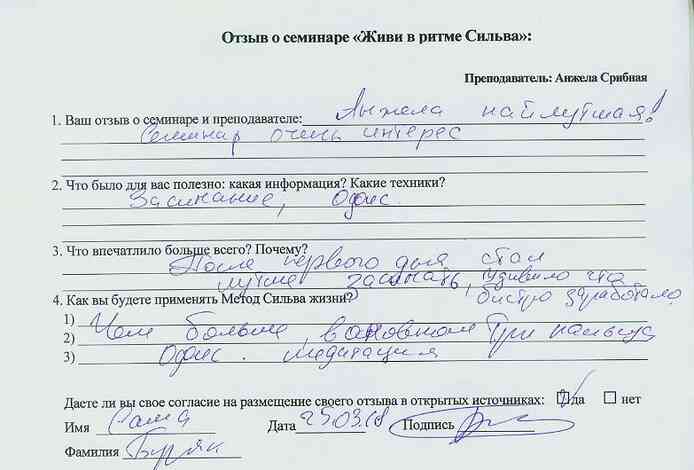 Отзыв о семинаре «Живи в ритме Сильва»:
Преподаватель: Анжела Срибная
1. Ваш отзыв о семинаре и преподавателе: Анжела найлутшая!
Семинар очень интерес
2. Что было для вас полезно: какая информация? Какие техники?
Засипание, Офис.
3. Что впечатлило больше всего? Почему?
После первого дня стал
лутше засипать, удивило что
быстро заработало
4. Как вы будете применять Метод Сильва жизни?
1) Чем больше, в основном Три пальца
2)
3) Офис. медитация
Даете ли вы свое согласие на размещение своего отзыва в открытых источниках: да нет
Имя Саша Дата 25.03.18 Подпись
Фамилия Буряк